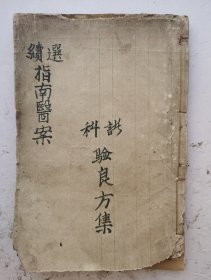 科
驗良方集
選續
指南醫案